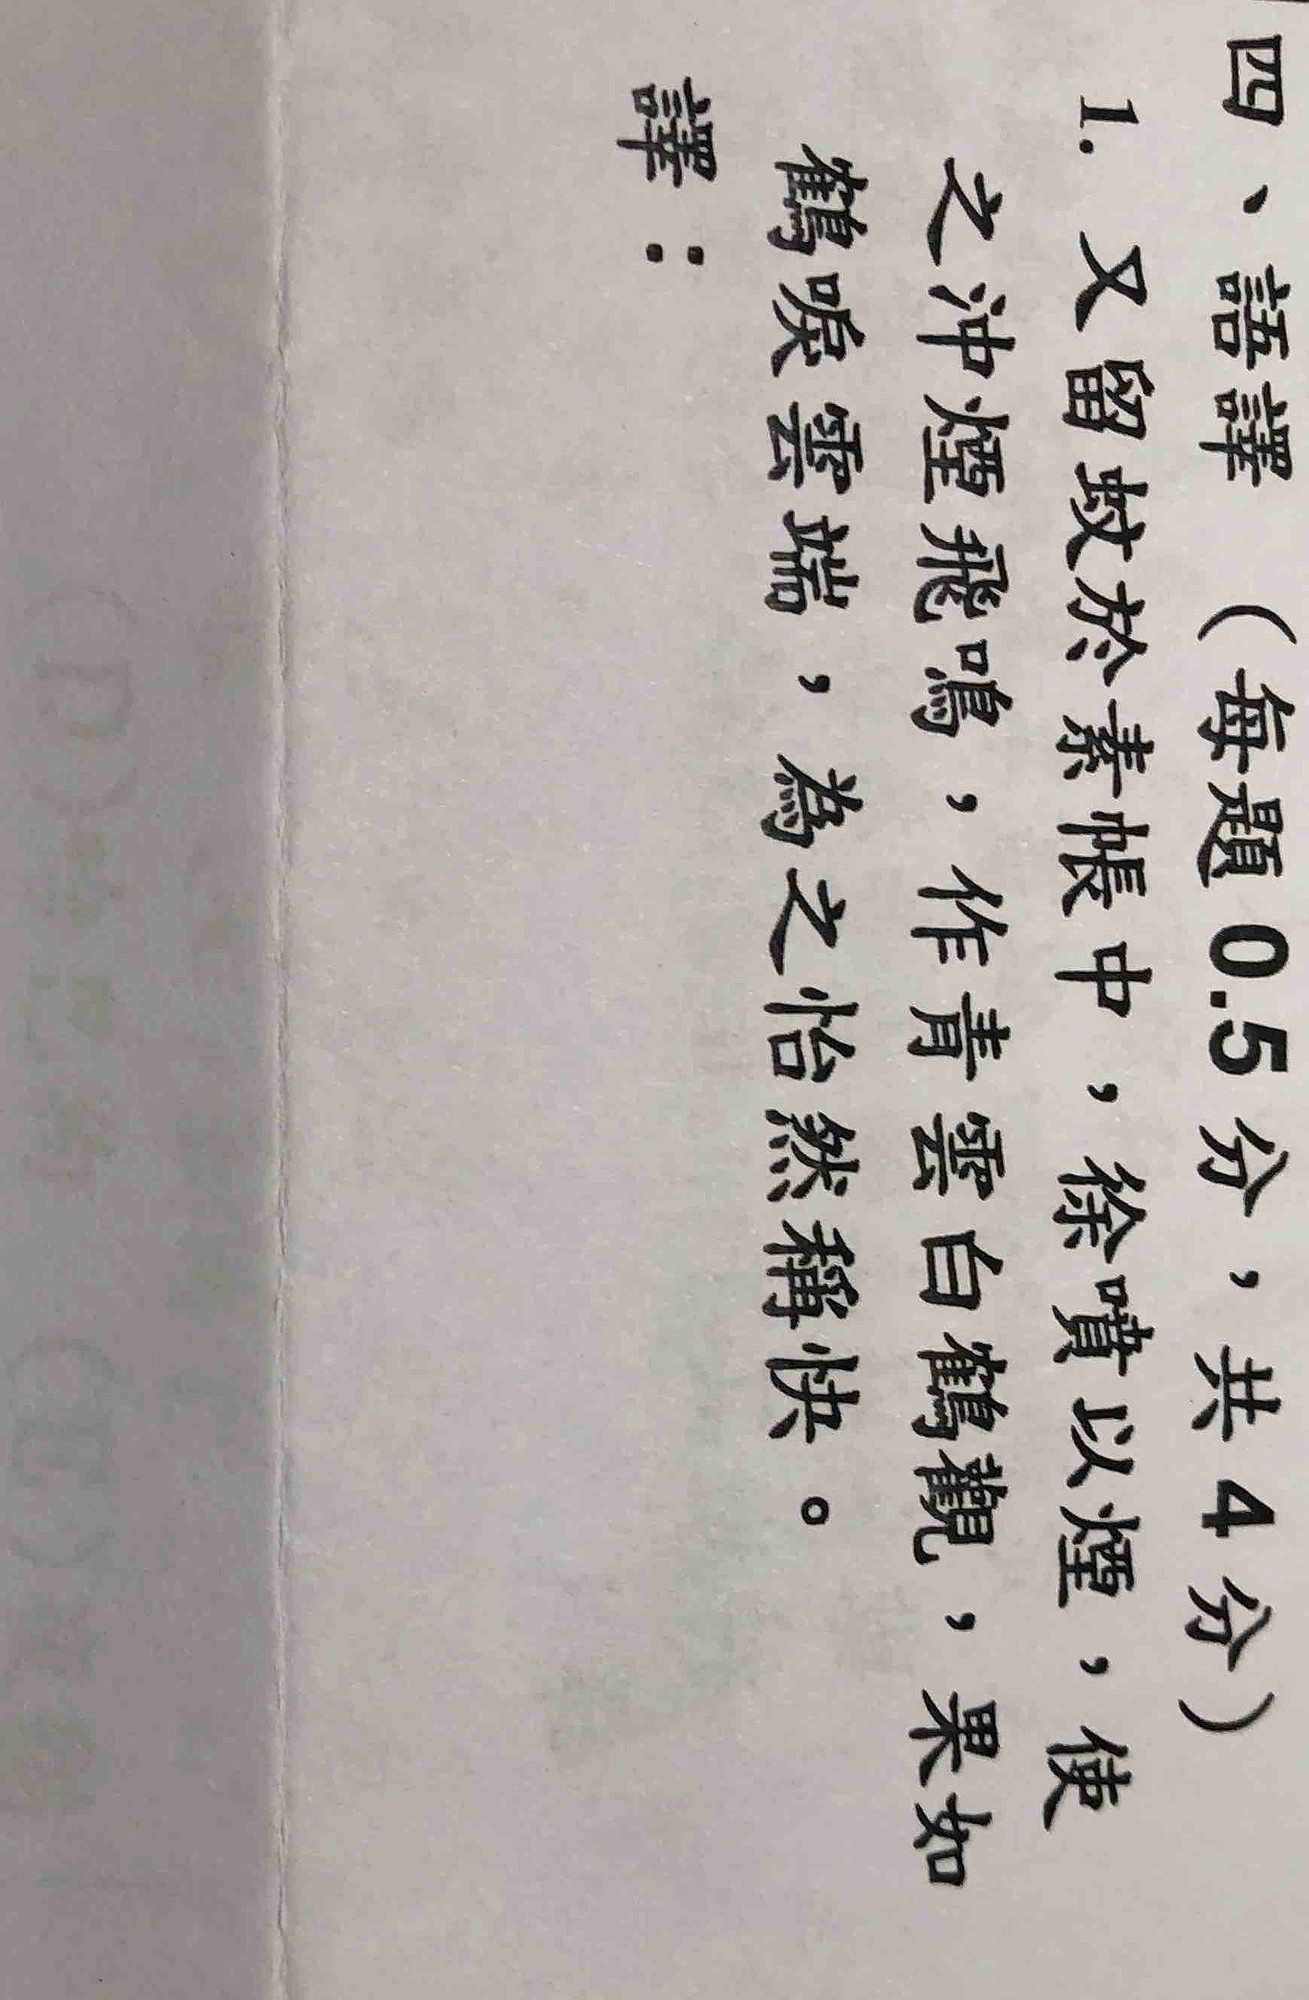 四、語譯（每題0.5分，共4分）
1. 又留蚊於素帳中，徐噴以煙，使
之沖煙飛鳴，作青雲白鶴觀，果如
鶴唳雲端，為之怡然稱快。
譯：